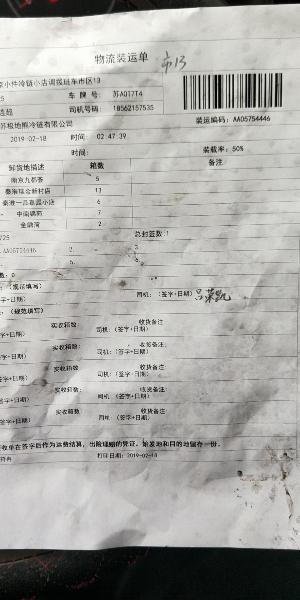 物流装运单
市13
京小件冷链小店调拨班车市区13
车 牌 号： 苏A017T4
司机号码： 18562157535
苏极地熊冷链有限公司
装运编码：AA05754446
2019-02-18 时间： 02:47:39
时间： 装载率：50%
卸货地描述 箱数 备注
南京九都荟 5
13
6
7
金鼎湾 2
总封签数:1
AA05754446 2. 3.
5. 6.
数：0
（规范填写）
+日期） 司机：（签字+日期）
（规范填写）
实收箱数： 收货备注：
字+日期） 司机：（签字+日期）
实收箱数： 收货备注：
字+日期） 司机：（签字+日期）
实收箱数： 收货备注：
字+日期） 司机：（签字+日期）
实收箱数： 收货备注：
字+日期） 司机：（签字+日期）
实收箱数： 收货备注：
字+日期） 司机：（签字+日期）
签收单在签字后作为运费结算，出险理赔的凭证，始发地和目的地留存一份。
打印日期：2019-02-18